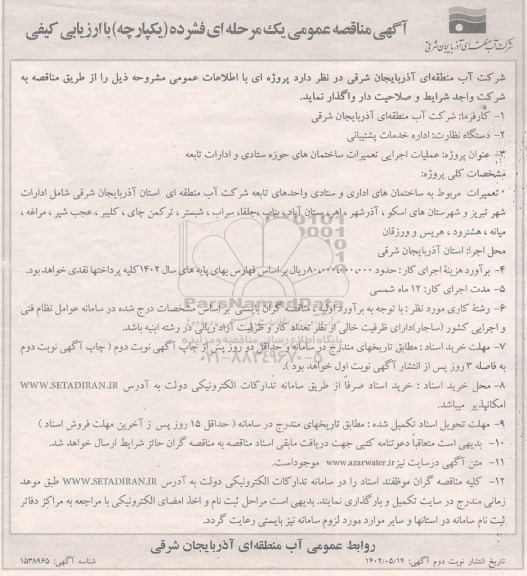 آگهی مناقصه عمومی یک مرحله ای فشرده (یکپارچه) با ارزیابی کیفی
شرکت آب منطقه‌ای آذربایجان شرقی
شرکت آب منطقه‌ای آذربایجان شرقی در نظر دارد پروژه ای با اطلاعات عمومی مشروحه ذیل را از طریق مناقصه به
شرکت واجد شرایط و صلاحیت دار واگذار نماید.
۱- کارفرما: شرکت آب منطقه‌ای آذربایجان شرقی
۲- دستگاه نظارت: اداره خدمات پشتیبانی
۳- عنوان پروژه: عملیات اجرایی تعمیرات ساختمان های حوزه ستادی و ادارات تابعه
مشخصات کلی پروژه:
* تعمیرات مربوط به ساختمان های اداری و ستادی واحدهای تابعه شرکت آب منطقه ای استان آذربایجان شرقی شامل ادارات
شهر تبریز و شهرستان های اسکو ، آذرشهر ، اهر، بستان آباد، بناب ،جلفا، سراب ، شبستر ، ترکمن چای ، کلیبر ، عجب شیر ، مراغه ،
میانه ، هشترود ، هریس و ورزقان
محل اجرا: استان آذربایجان شرقی
۴- برآورد هزینهٔ اجرای کار : حدود ۸۰،۰۰۰،۰۰۰،۰۰۰ ریال بر اساس فهارس بهای پایه های سال ۱۴۰۲ کلیه پرداختها نقدی خواهد بود.
۵- مدت اجرای کار: ۱۲ ماه شمسی
۶- رشتهٔ کاری مورد نظر : با توجه به برآورد اولیه ، مناقصه گران بایستی بر اساس مشخصات درج شده در سامانه عوامل نظام فنی
و اجرایی کشور (ساجار)دارای ظرفیت خالی از نظر تعداد کار و ظرفیت آزاد ریالی در رشته ابنیه باشد.
۷- مهلت خرید اسناد : مطابق تاریخهای مندرج در سامانه و حداقل دو روز پس از چاپ آگهی نوبت دوم ( چاپ آگهی نوبت دوم
به فاصله ۳ روز پس از انتشار آگهی نوبت اول خواهد بود ).
۸- محل خرید اسناد : خرید اسناد صرفا از طریق سامانه تدارکات الکترونیکی دولت به آدرس WWW.SETADIRAN.IR
امکانپذیر میباشد.
۹- مهلت تحویل اسناد تکمیل شده : مطابق تاریخهای مندرج در سامانه ( حداقل ۱۵ روز پس ز آخرین مهلت فروش اسناد )
۱۰- بدیهی است متعاقبا دعوتنامه کتبی جهت دریافت مابقی اسناد مناقصه به مناقصه گران حائز شرایط ارسال خواهد شد.
۱۱- متن آگهی درسایت نیز www.azarwater.ir موجوداست.
۱۲- کلیه مناقصه گران موظفند اسناد را در سامانه تدارکات الکترونیکی دولت به آدرس WWW.SETADIRAN.IR طبق موعد
زمانی مندرج در سایت تکمیل و بارگذاری نمایند. بدیهی است مراحل ثبت نام و اخذ امضای الکترونیکی با مراجعه به مراکز دفاتر
ثبت نام سامانه در استانها و سایر موارد مورد لزوم سامانه نیز بایستی رعایت گردد.
روابط عمومی آب منطقه‌ای آذربایجان شرقی
تاریخ انتشار نوبت دوم آگهی: ۱۴۰۲/۰۵/۱۴
شناسه آگهی: ۱۵۳۸۹۶۵
ParsNamadData
۰۲۱-۸۸۳۴۹۶۷۰-۵